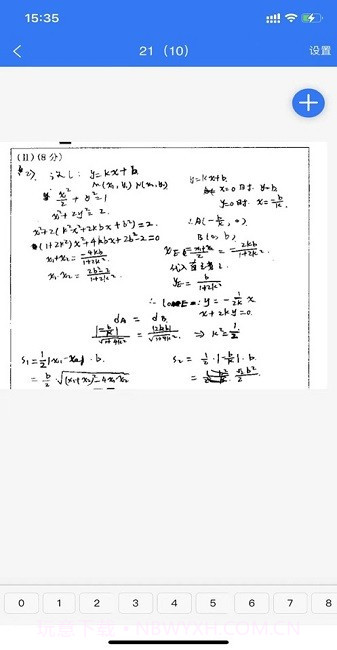 15:35
21（10）
设置
(II)(8分)
设 l: y=kx+b
M(x₁, y₁) N(x₂, y₂)
x²/2 + y² = 1
x²+2y²=2.
x²+2(k²x²+2kbx+b²)=2.
(1+2k²)x²+4kbx+2b²-2=0
x₁+x₂=-4kb/1+2k²
x₁·x₂=2b²-2/1+2k²
y=kx+b.
x=0时, y=b.
y=0时, x=-b/k.
∴A(-b/k, 0)
B(0, b)
x_E=x₁+x₂/2=-2kb/1+2k²
y_E=b/1+2k²
y=-1/2k x
x+2ky=0.
d_A = d_B
⇒ k²=1/2
S₁=1/2|x₁-x₂|·b.
=b/2·√(x₁+x₂)²-4x₁x₂
S₂=1/2·|-b/k|·b.
0 1 2 3 4 5 6 7 8